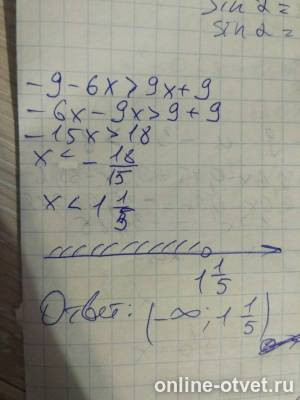 sin 2 =
sin 2 =
-9-6x>9x+9
-6x-9x>9+9
-15x>18
x<-18/15
x<1 1/5
1 1/5
Ответ: (-∞; 1 1/5)
online-otvet.ru